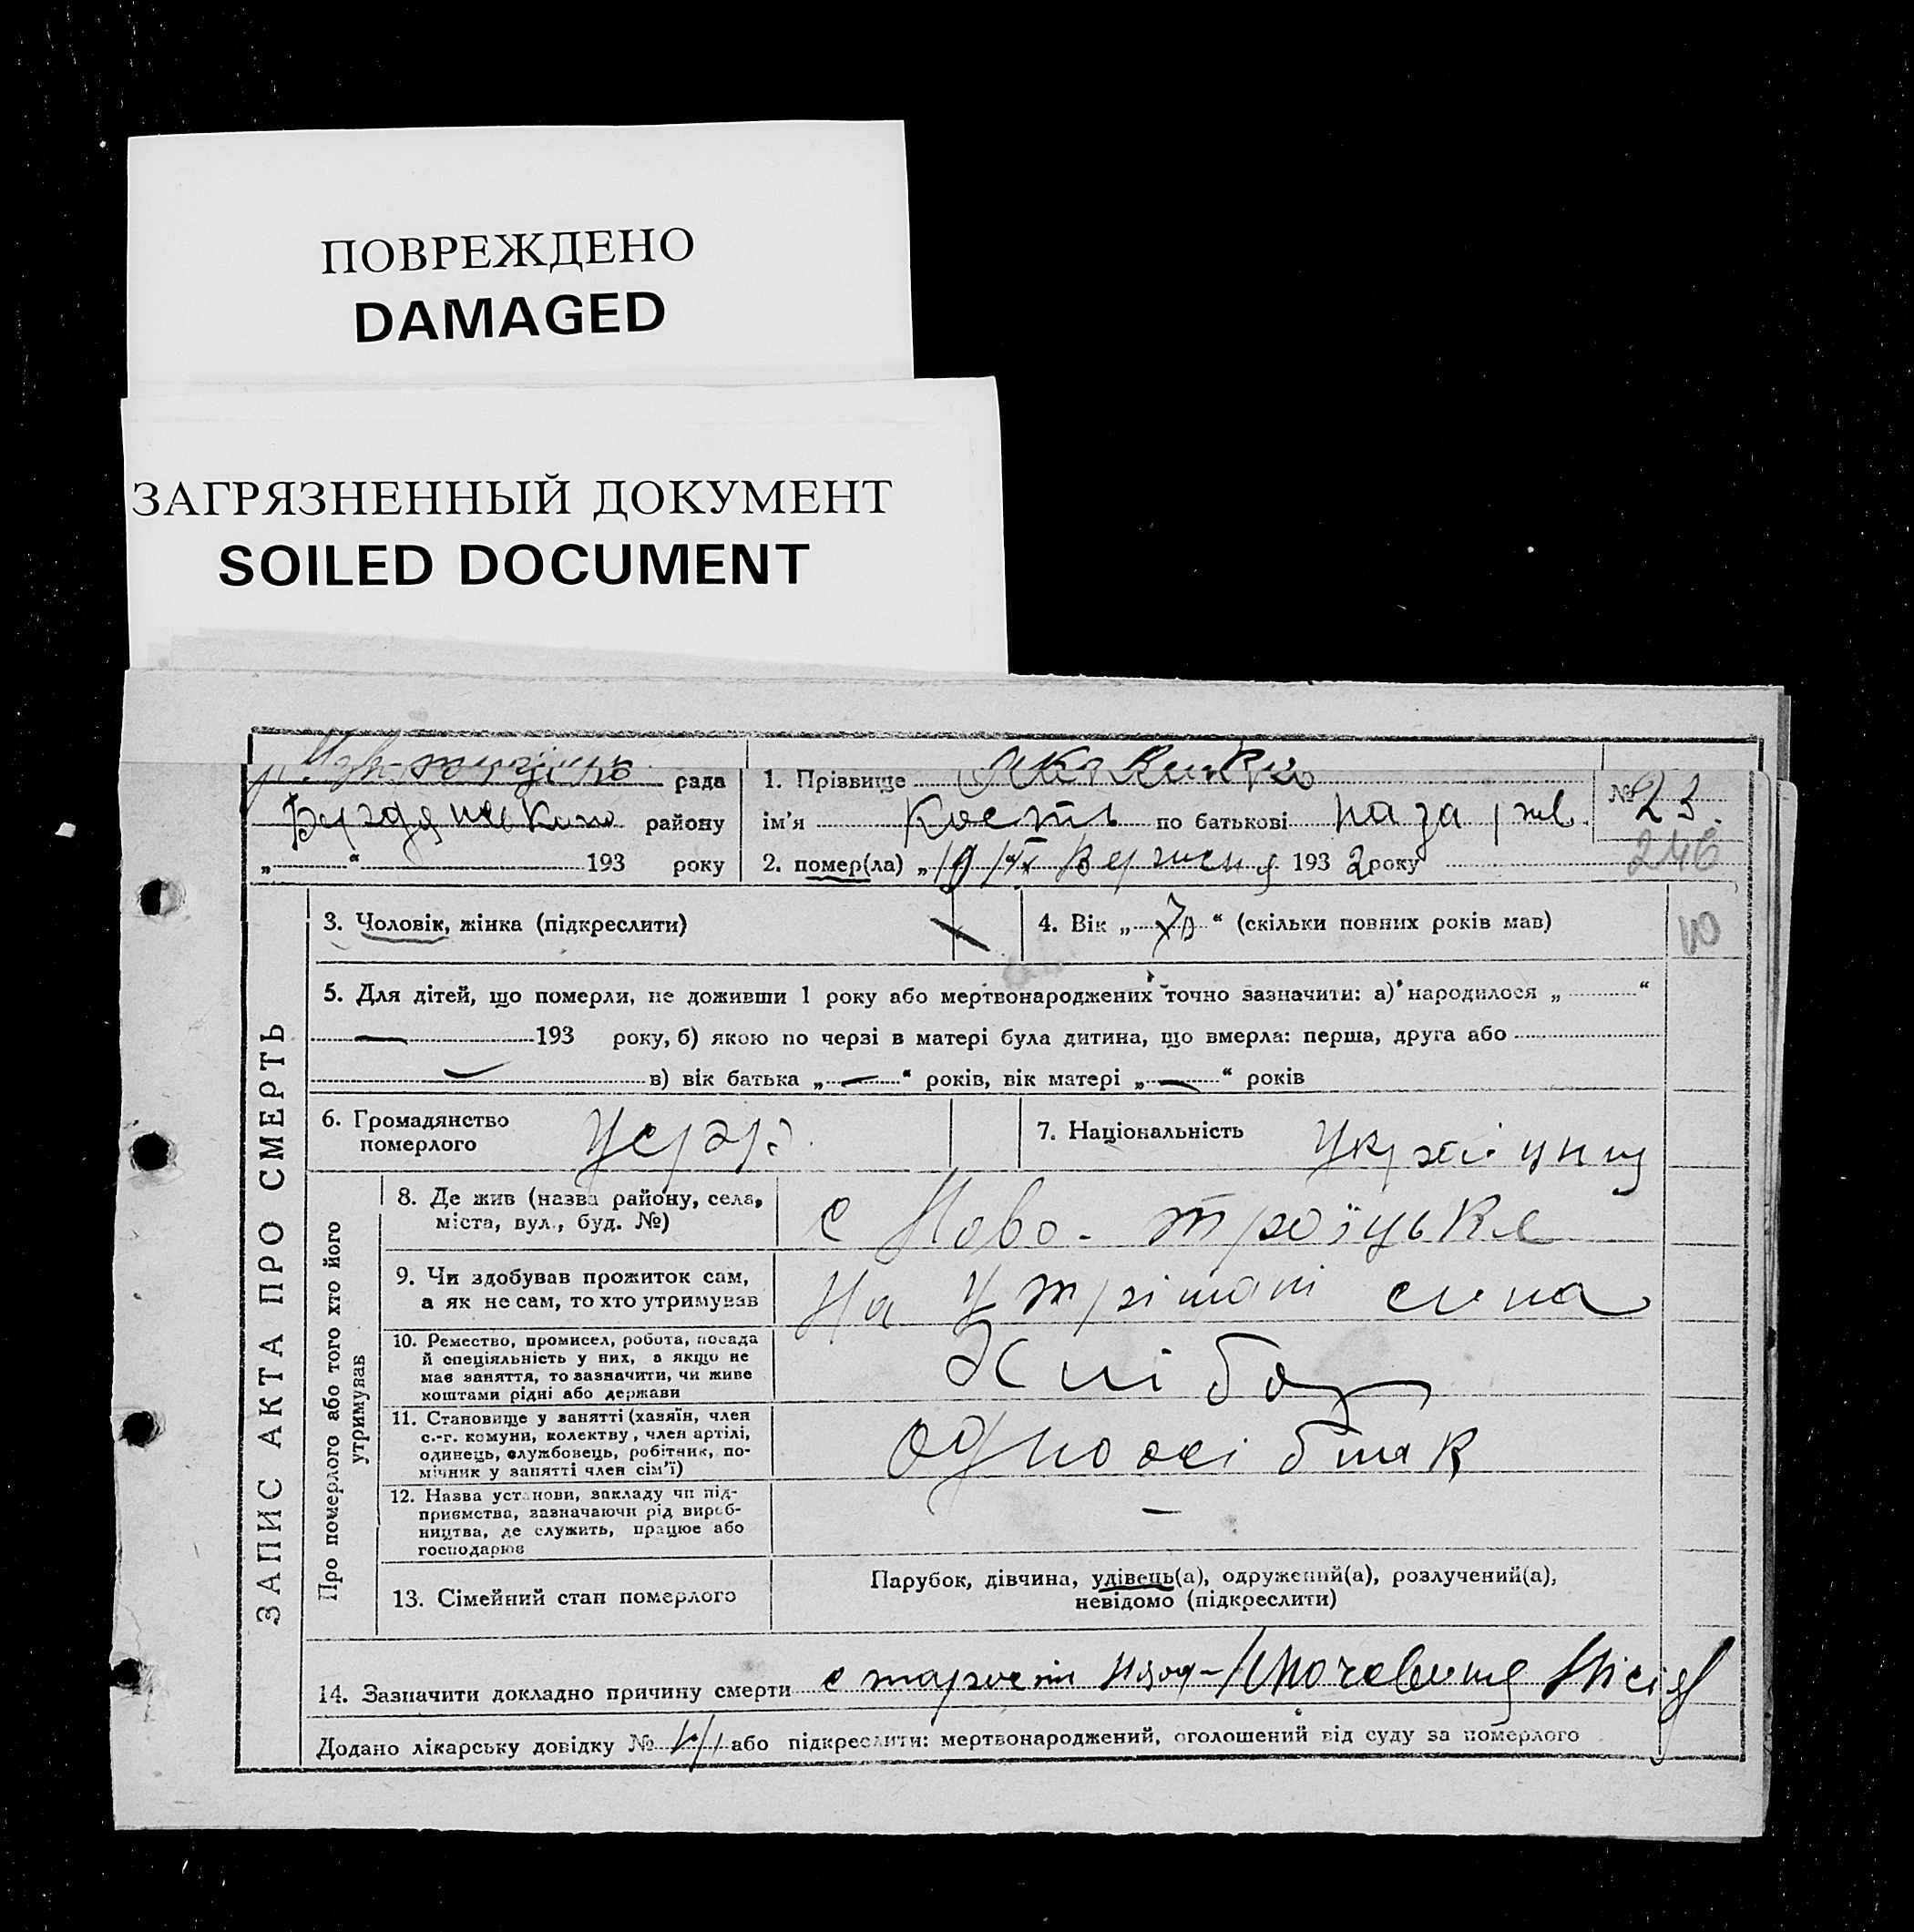 ПОВРЕЖДЕНО
DAMAGED
ЗАГРЯЗНЕННЫЙ ДОКУМЕНТ
SOILED DOCUMENT
рада
району
„ “ 193 року
1. Прізвище
ім’я Кость по батькові
2. помер(ла) „19/IX Вересня 1932 року
№ 23.
246
3. Чоловік, жінка (підкреслити)
4. Вік „70“ (скільки повних років мав)
10
5. Для дітей, що померли, не доживши 1 року або мертвонароджених точно зазначити: а) народилося „ “
— 193 року, б) якою по черзі в матері була дитина, що вмерла: перша, друга або
— в) вік батька „—“ років, вік матері „—“ років
6. Громадянство
померлого
7. Національність
ЗАПИС АКТА ПРО СМЕРТЬ
Про померлого або того хто його
утримував
8. Де жив (назва району, села,
міста, вул., буд. №)
с Ново-троїцьке
9. Чи здобував прожиток сам,
а як не сам, то хто утримував
На утрімані сина
10. Ремество, промисел, робота, посада
й спеціяльність у них, а якщо не
має заняття, то зазначити, чи живе
коштами рідні або держави
Хлібор
11. Становище у занятті (хазяїн, член
с.-г. комуни, колектву, член артілі,
одинець, службовець, робітник, по-
мічник у занятті член сім’ї)
одноосібник
12. Назва установи, закладу чи під-
приємства, зазначаючи рід вироб-
ництва, де служить, працює або
господарює
—
13. Сімейний стан померлого
Парубок, дівчина, удівець(а), одружений(а), розлучений(а),
невідомо (підкреслити)
14. Зазначити докладно причину смерти старости
Додано лікарську довідку № або підкреслити: мертвонароджений, оголошений від суду за померлого